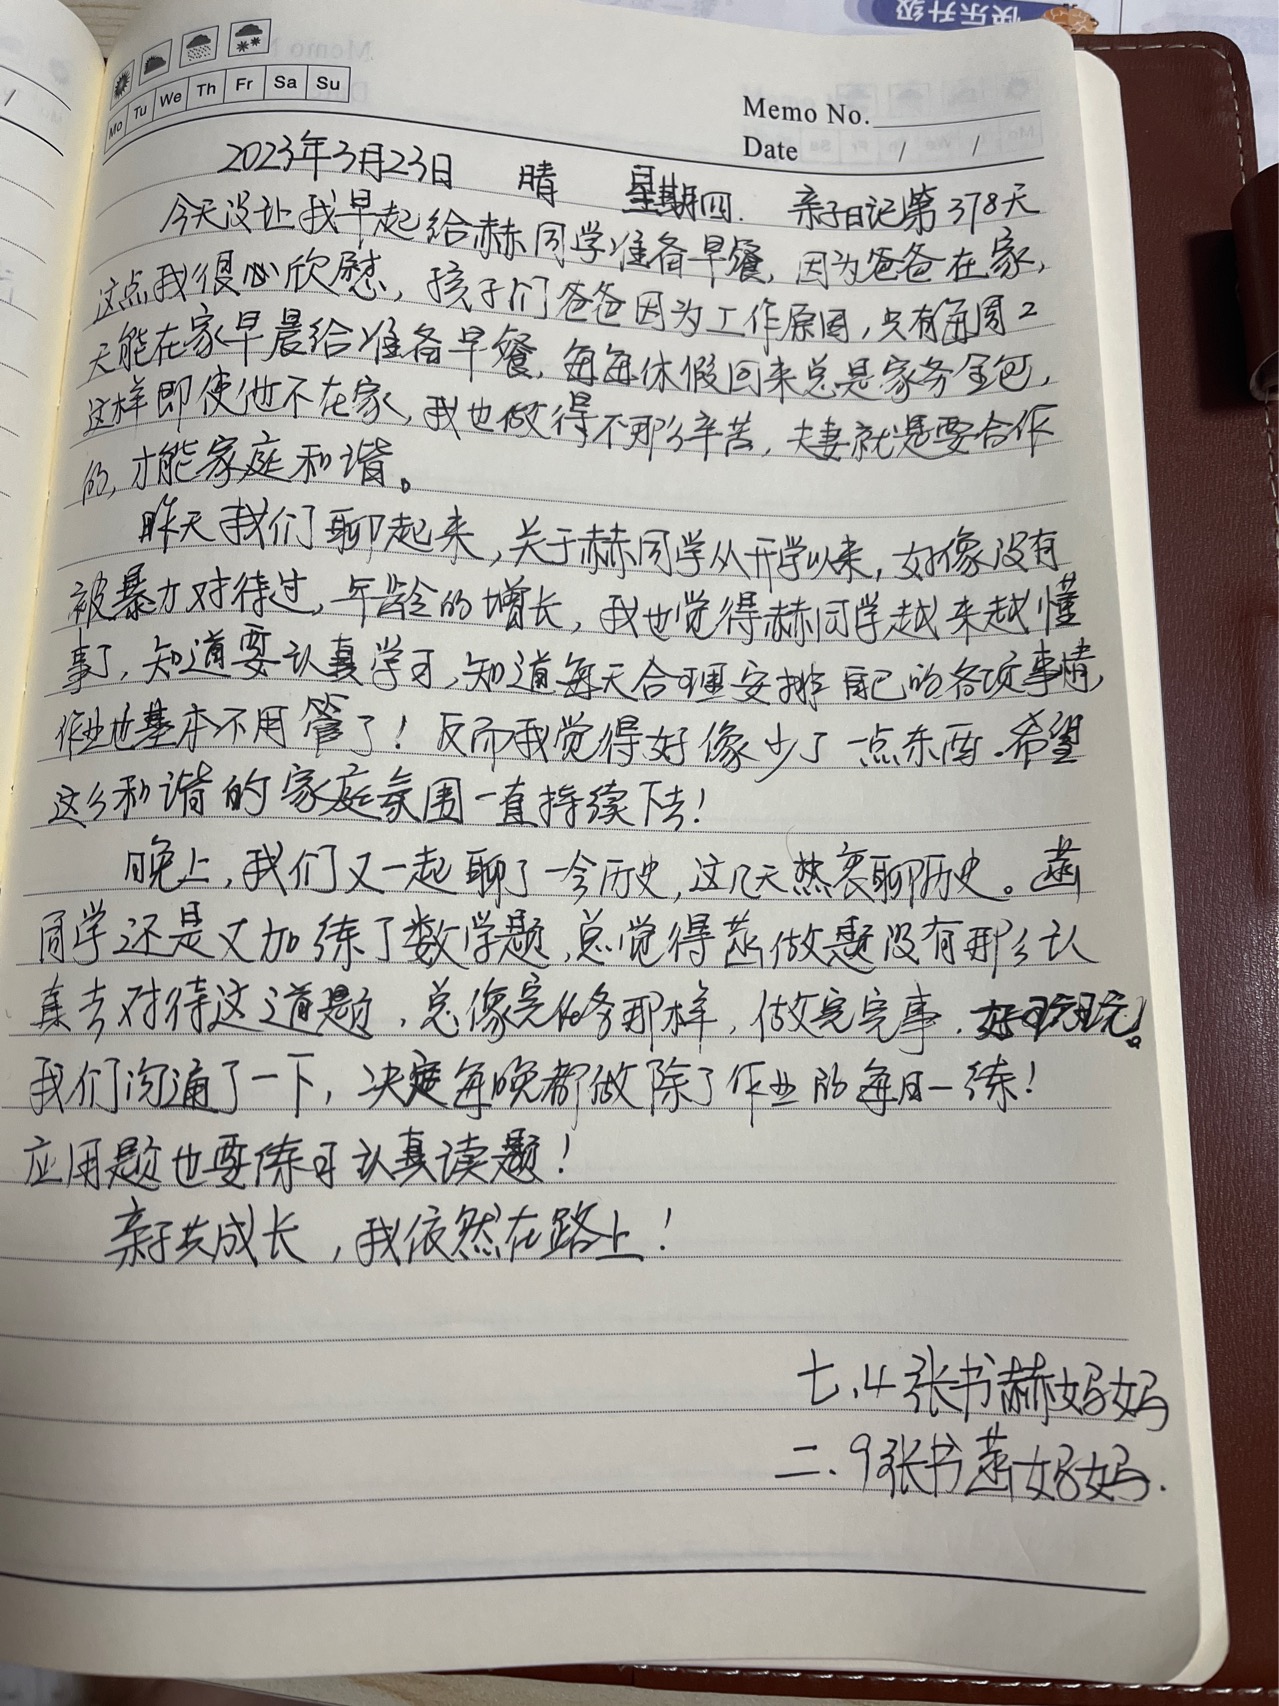 快乐升级
Mo Tu We Th Fr Sa Su
Memo No.
Date / /
2023年3月23日 晴 星期四. 亲子日记第378天
今天没让我早起给赫同学准备早餐,因为爸爸在家,
这点我很心欣慰,孩子们爸爸因为工作原因,只有每周2
天能在家早晨给准备早餐,每每休假回来总是家务全包,
这样即使他不在家,我也做得不那么辛苦,夫妻就是要合作
的,才能家庭和谐。
昨天我们聊起来,关于赫同学从开学以来,好像没有
被暴力对待过,年龄的增长,我也觉得赫同学越来越懂
事了,知道要认真学习,知道每天合理安排自己的各项事情,
作业也基本不用管了!反而我觉得好像少了一点东西.希望
这么和谐的家庭氛围一直持续下去!
晚上,我们又一起聊了一会历史,这几天热衷聊历史。菡
同学还是又加练了数学题,总觉得菡做题没有那么认
真去对待这道题,总像完任务那样,做完完事,好可玩玩。
我们沟通了一下,决定每晚都做除了作业的每日一练!
应用题也要练习认真读题!
亲子共成长,我依然在路上!
七.4张书赫妈妈
二.9张书菡妈妈.